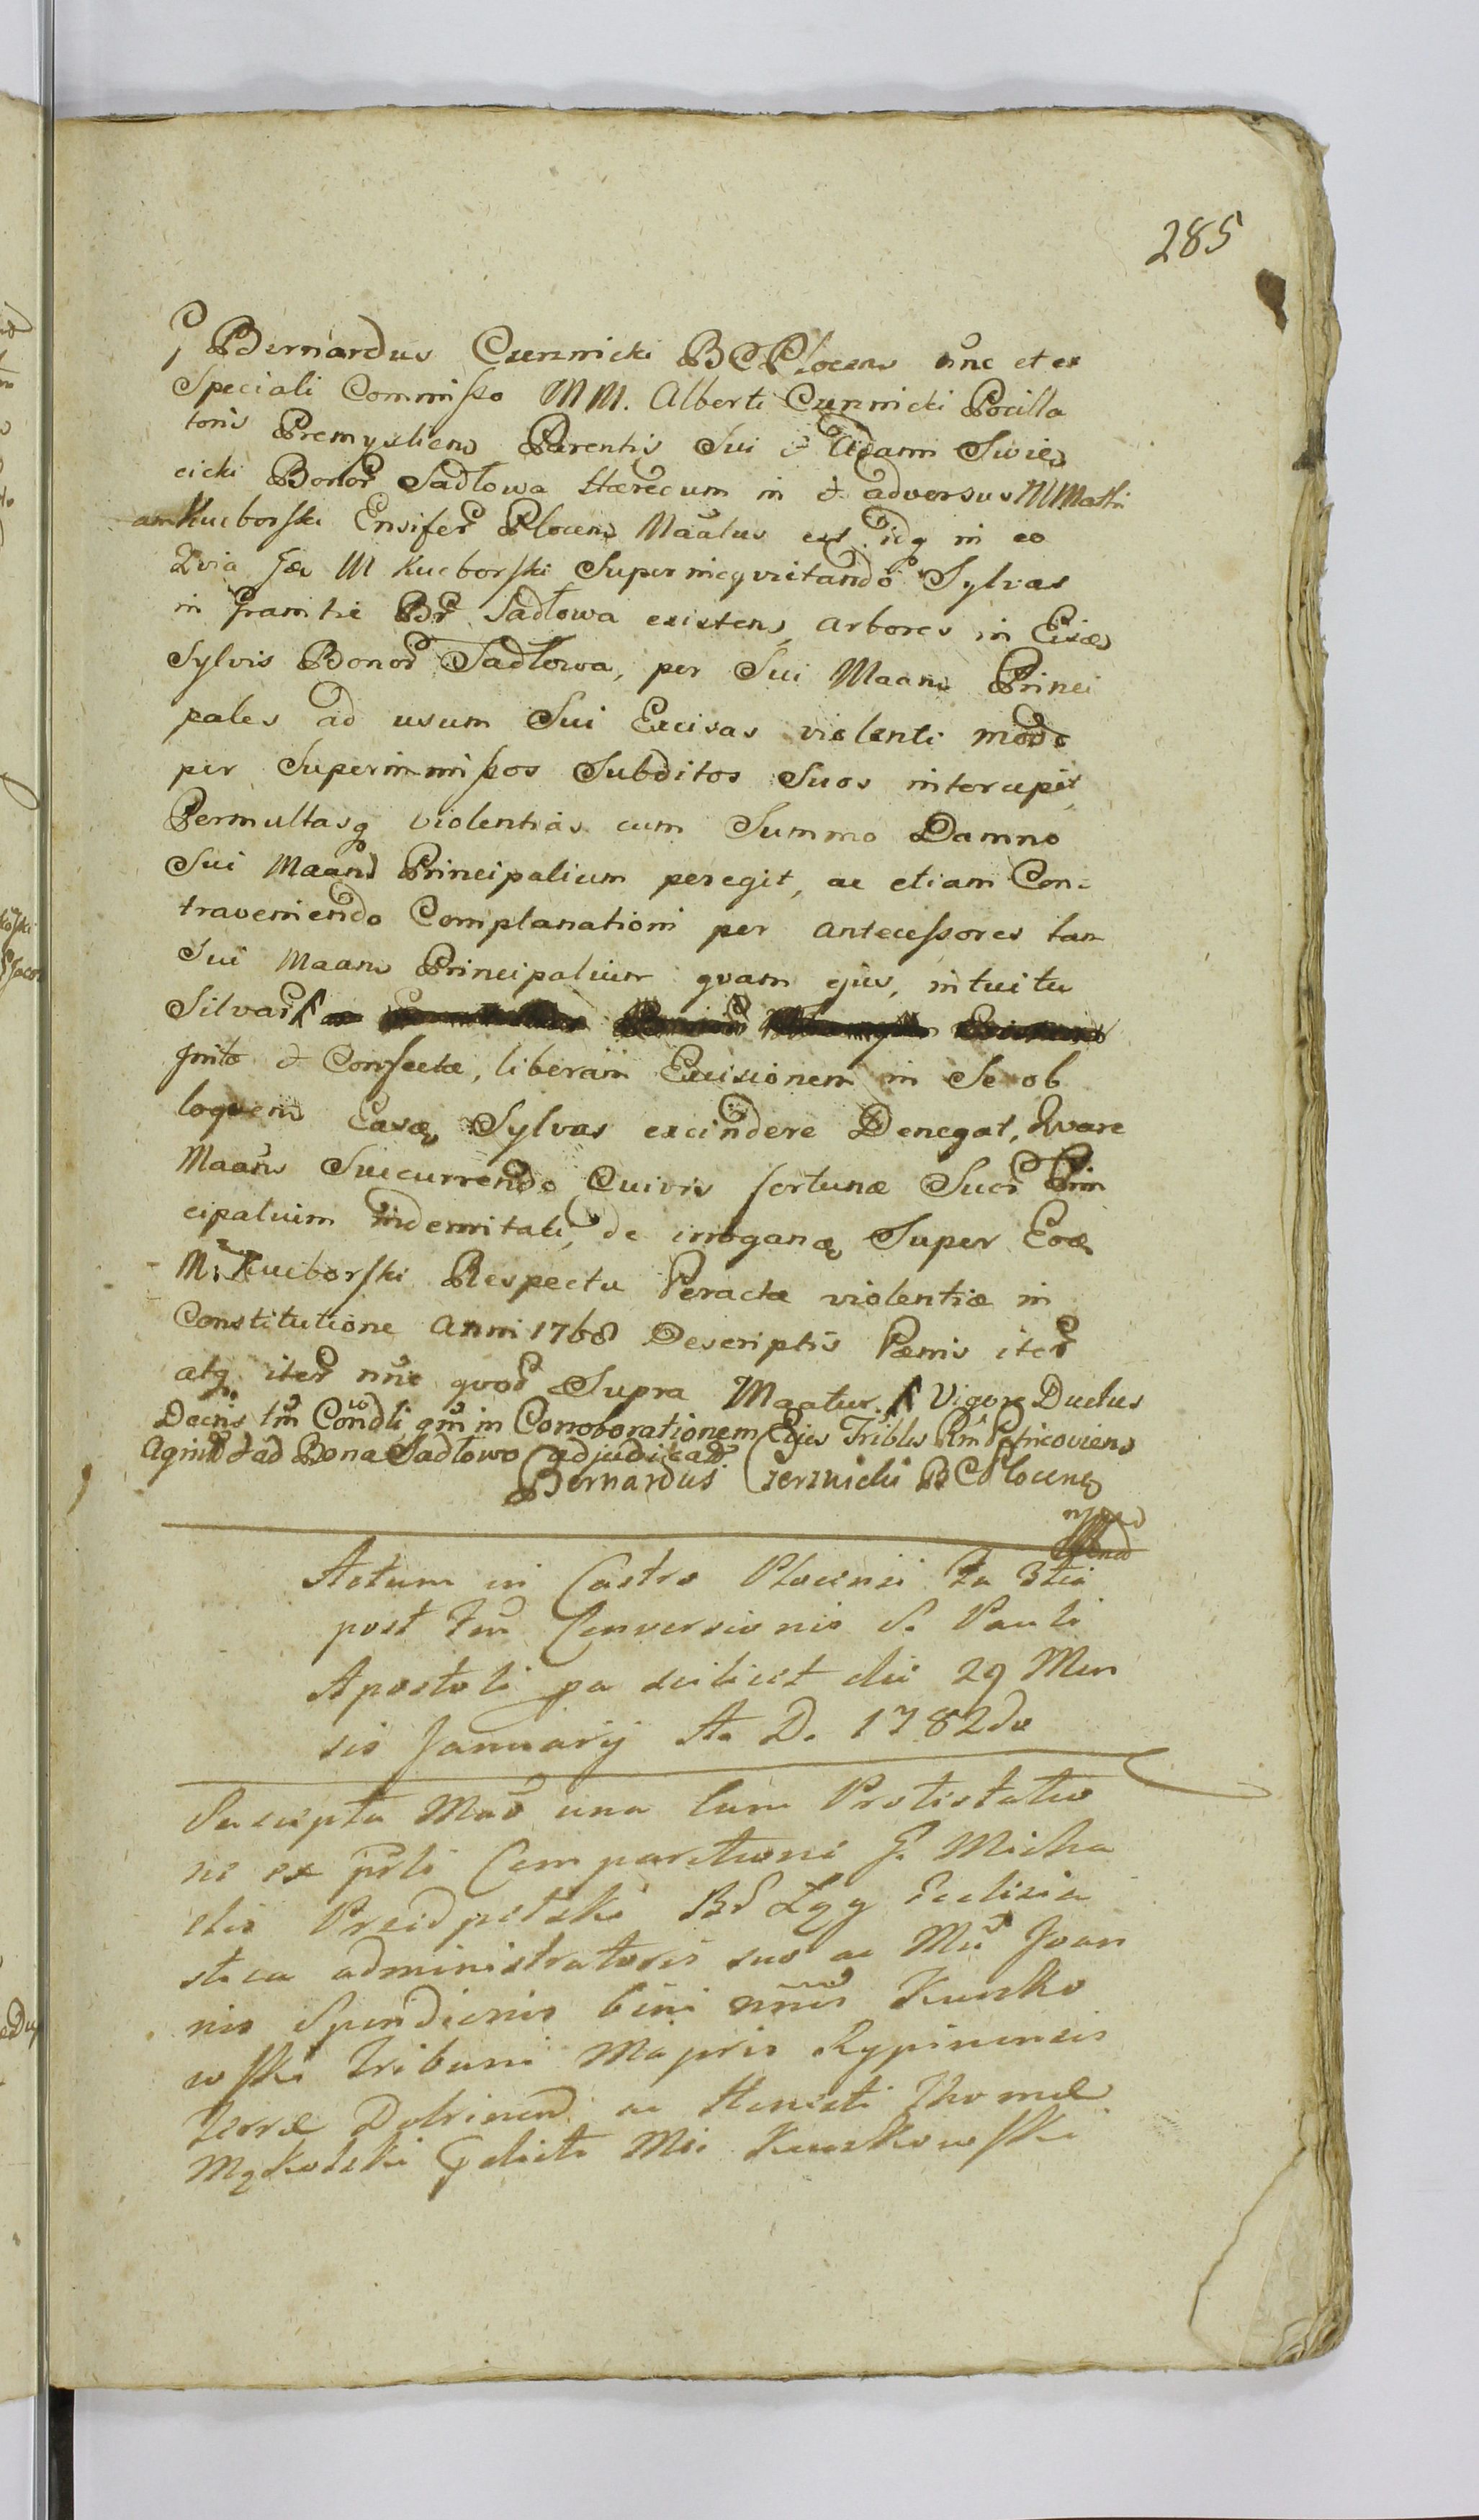 285
G Bernardus Czernicki B C Plocens nũnc et ex
Speciali Commisso MM. Alberti Czernicki Pocilla
toris Premysliens Parentis Sui & Adami Swie
cicki Bonor Sadlowa Hæredum in & adversus M Mathi
am Kucborski Ensifer Plocens Maãtus est idq in eo
Quia Idem M Kucborski Superinequitando Sylvas
in Granitie Br Sadlowa existens, arbores in Eisdem
Sylvis Bonor Sadlowa, per Sui Maans Princi
pales ad usum Sui Excisas violenti modo
per Superimmissos Subditos Suos intercepit,
Permultasq violentias cum Summo Damno
Sui Maans Principalium peregit, ac etiam Con=
traveniendo Complanationi per antecessores tam
Sui Maans Principalium quam ejus, intuitu
Silvar
Inita & Confecta, liberam Excisionem in Se ob
loquens Easdem Sylvas excindere Denegat, Quare
Maans Succurrendo Cuivis fortunæ Suor Prin
cipalium indemnitati, de irrogandis Super Eodem
M. Kucborski Respectu Peractæ violentiæ in
Constitutione Anni 1768 Descriptis Pænis iter
atq iter nũnc quod Supra Maatur. Vigore Ductus
in Corroborationem Ejus Triblis
ad Bona Sadlowo adjudicat
Bernardus Czernicki B C Plocens
mppa
Actum in Castro Plocensi Fa 3tia
post Fm Conversionis S. Pauli
Apostoli pa scilicet die 29 Men
sis Januarij A. D. 1782do
Suscepta Mão una cum Protestatio
ne ex pũli Comparitione G. Micha
elis B S Zgg Ecclesia
stica administratoris suo ac Mũ Joan
nis bini nñis Kuczko
wski Tribuni Mapris Rypinensis
Terræ Dobrinen ac Honesti Thomæ
Mąkolski Gdicti Mci Kuczkowski